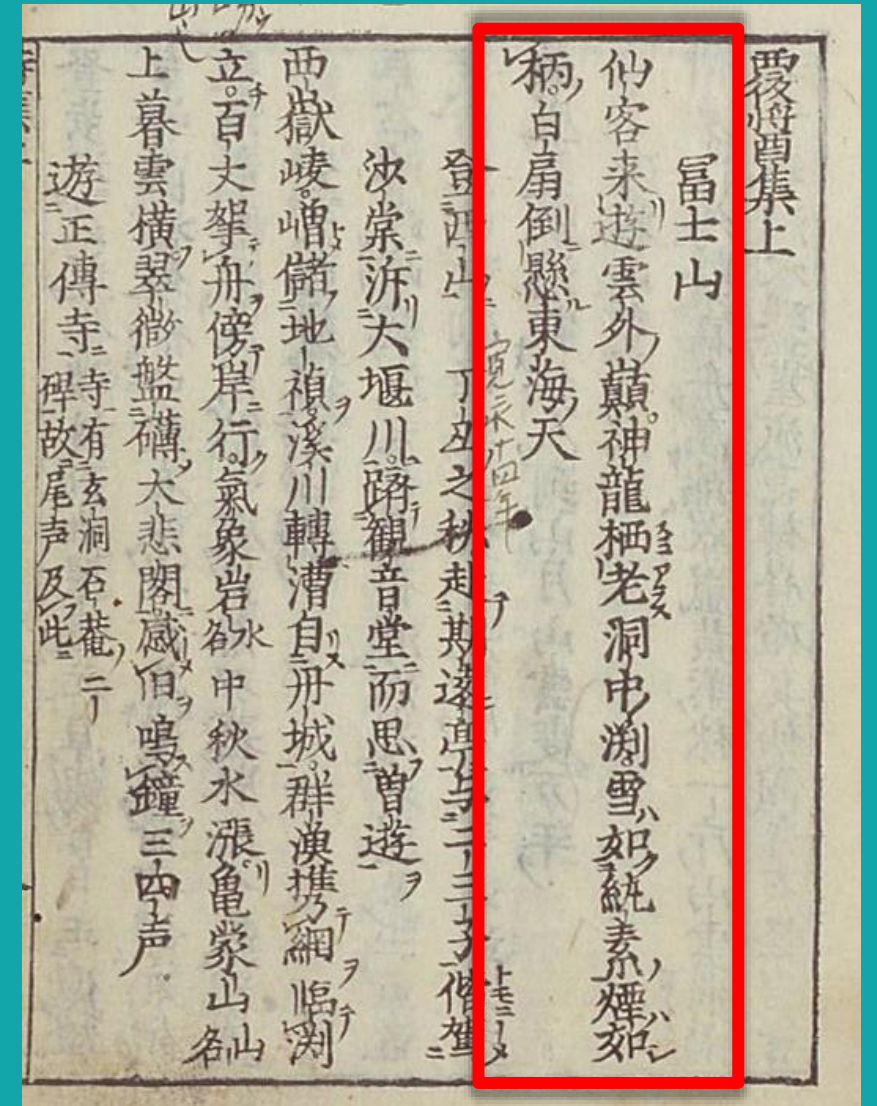 覆醬集上
冨士山
仙客来遊雲外巓。神龍栖老洞中渕。雪如紈素煙如
柄。白扇倒懸東海天
登西山 丁丑之秋赴期遠亭与二三子偕駕
寛永十四年
沙棠泝大堰川。路観音堂而思曽遊
西嶽崚嶒儲地禎。溪川轉漕自丹城。群漁携網臨渕
立。百丈牽舟傍岸行。氣象岩水名中秋水漲。亀蒙山山名
上暮雲横翠微盤礴大悲閣蔵旧鳴鐘三四声
遊正傳寺 寺有玄洞石菴二碑故尾声及此